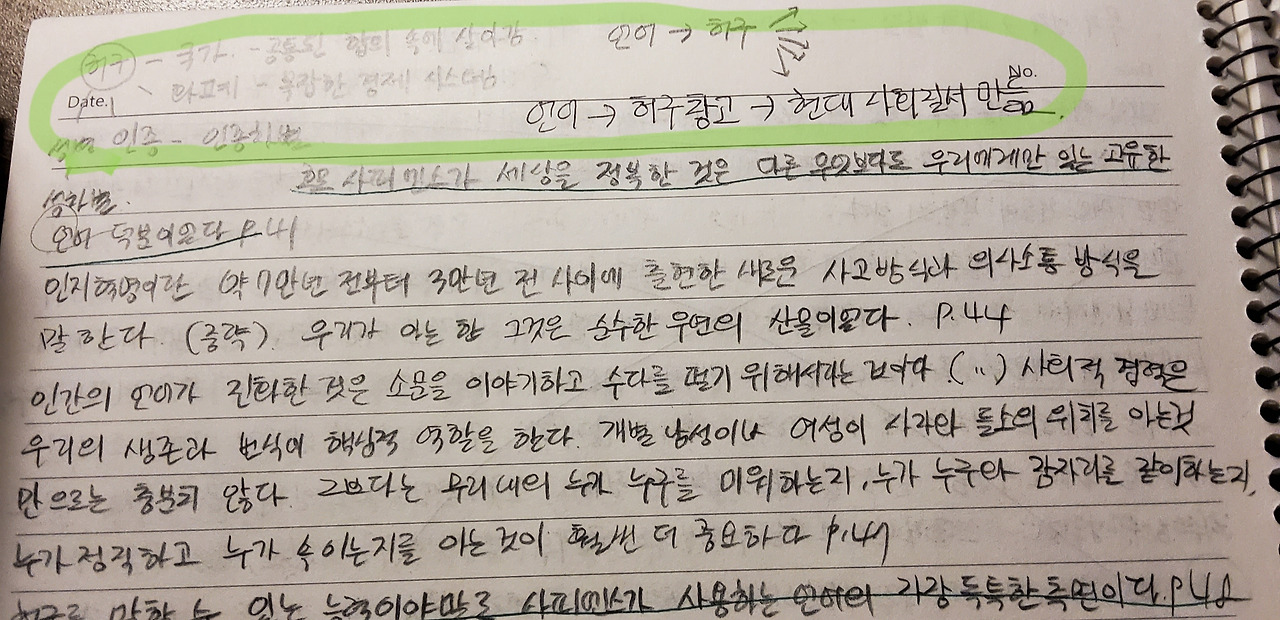 허구 - 국가. - 공통된 합의 속에 살아감. 언어 → 허구
화폐 - 복잡한 경제 시스템
Date. No.
언어 → 허구창고 → 현대 사회질서 만듦
인종 - 인종차별
호모 사피엔스가 세상을 정복한 것은 다른 무엇보다도 우리에게만 있는 고유한
성차별.
언어 덕분이었다 P.41
인지혁명이란 약 7만년 전부터 3만년 전 사이에 출현한 새로운 사고방식과 의사소통 방식을
말한다. (중략). 우리가 아는 한 그것은 순수한 우연의 산물이었다. P.44
인간의 언어가 진화한 것은 소문을 이야기하고 수다를 떨기 위해서라는 (..) 사회적 협력은
우리의 생존과 번식에 핵심적 역할을 한다. 개별 남성이나 여성이 사자와 들소의 위치를 아는것
만으로는 충분치 않다. 그보다는 무리 내의 누가 누구를 미워하는지, 누가 누구와 잠자리를 같이하는지,
누가 정직하고 누가 속이는지를 아는것이 훨씬 더 중요하다 P.47
허구를 말할 수 있는 능력이야말로 사피엔스가 사용하는 언어의 가장 독특한 측면이다. P.48